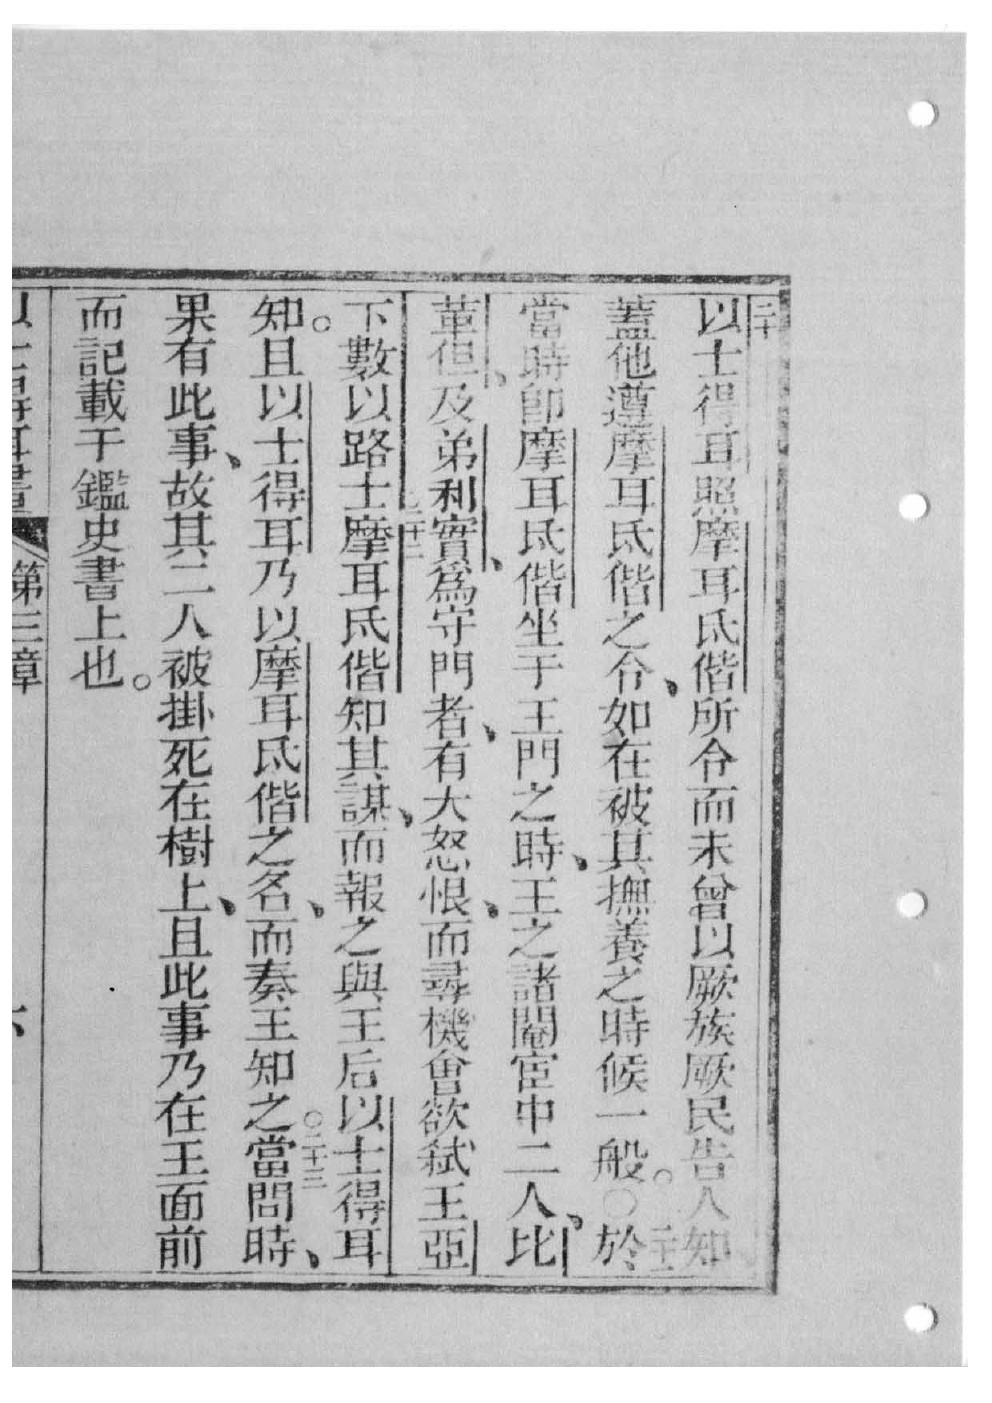 二十
以士得耳照摩耳氐偕所令而未曾以厥族厥民告人知
蓋他遵摩耳氐偕之令、如在被其撫養之時候一般。○二十一於
當時卽摩耳氐偕坐于王門之時、王之諸閹宦中二人、比
革但、及弟利實、爲守門者、有大怒恨、而尋機會欲弒王亞
下數以路士○二十二摩耳氐偕知其謀、而報之與王后以士得耳
知。且以士得耳乃以摩耳氐偕之名、而奏王知之○二十三當問時、
果有此事、故其二人被掛死在樹上、且此事乃在王面前
而記載于鑑史書上也。
以士得耳書 第三章